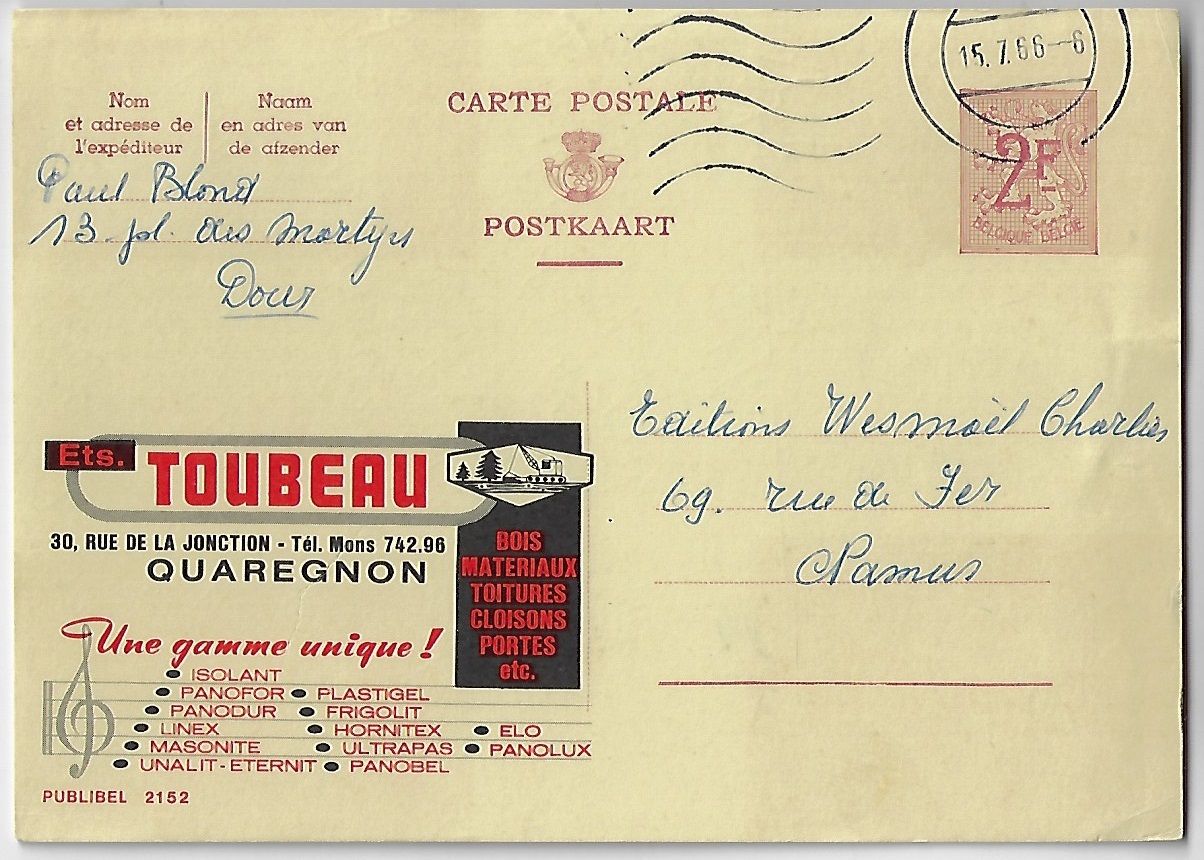 15.7.66-6
Nom
et adresse de
l'expéditeur
Naam
en adres van
de afzender
CARTE POSTALE
POSTKAART
2F
BELGIQUE BELGIE
Paul Blond
13 pl. des Martyrs
Dour
Editions Wesmaël Charlier
69. rue de Fer
Namur
Ets. TOUBEAU
30, RUE DE LA JONCTION - Tél. Mons 742.96
QUAREGNON
BOIS
MATERIAUX
TOITURES
CLOISONS
PORTES
etc.
Une gamme unique !
ISOLANT
PANOFOR PLASTIGEL
PANODUR FRIGOLIT
LINEX HORNITEX ELO
MASONITE ULTRAPAS PANOLUX
UNALIT-ETERNIT PANOBEL
PUBLIBEL 2152